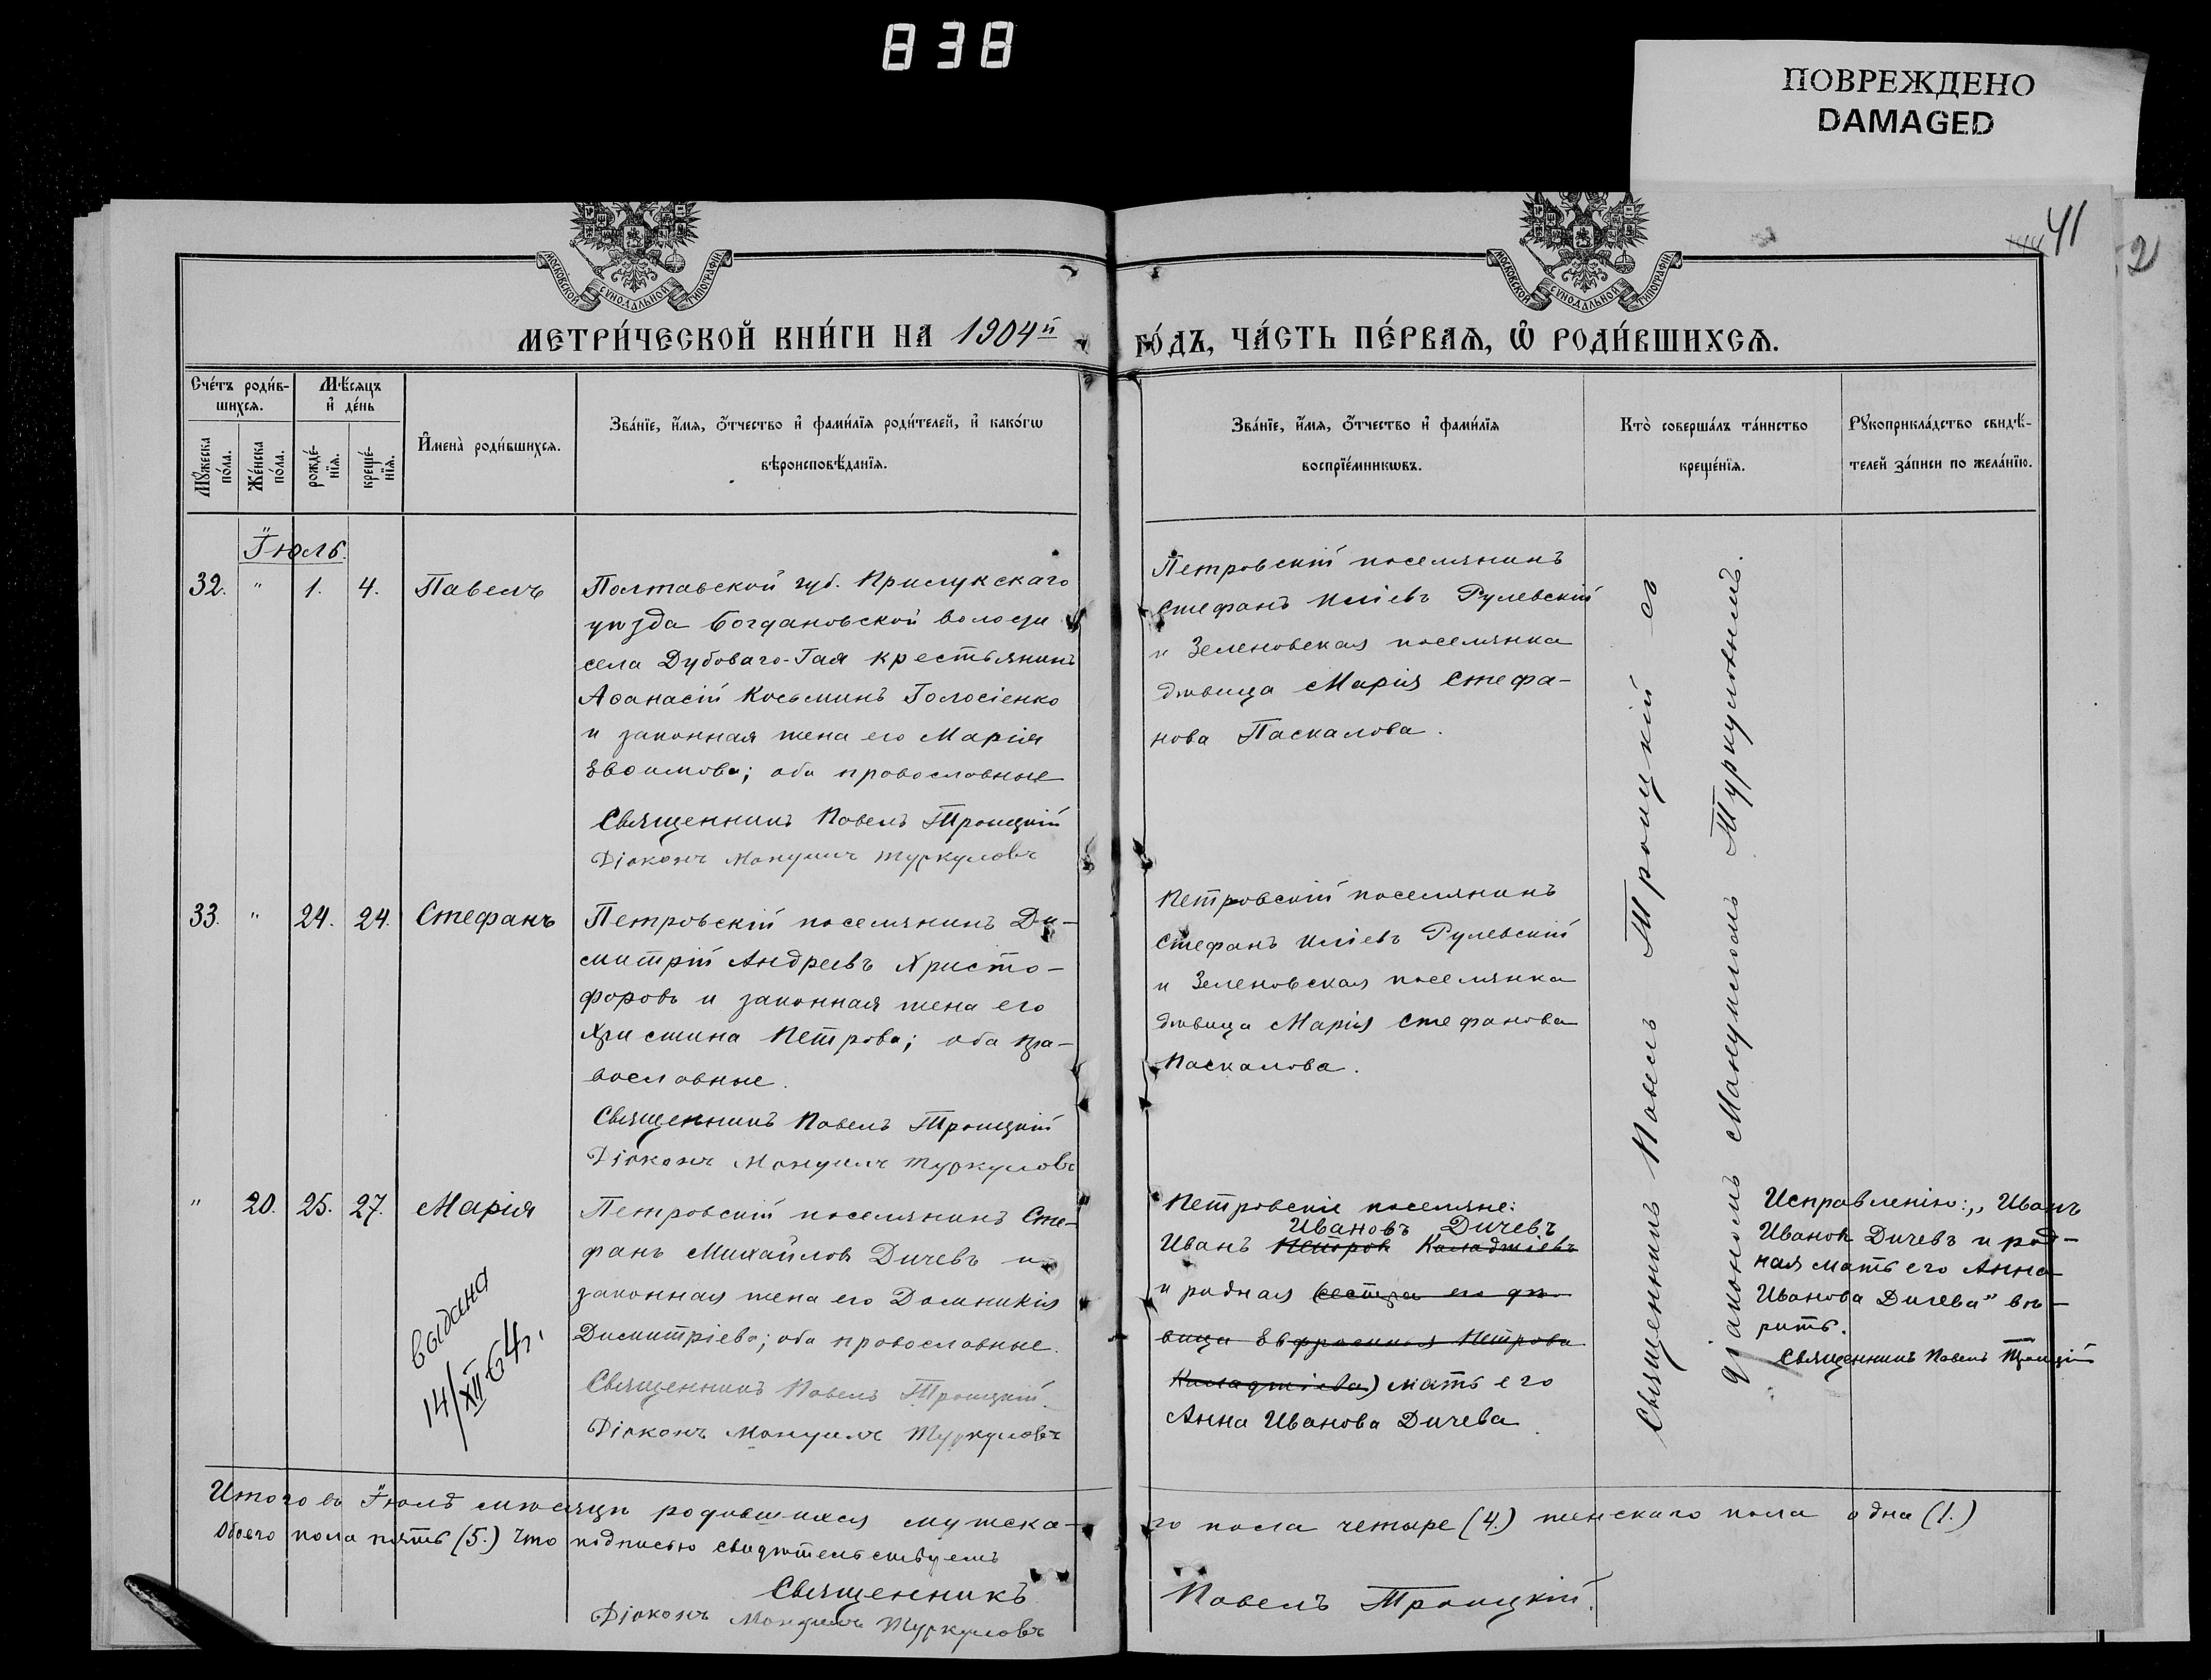 838
ПОВРЕЖДЕНО
DAMAGED
41
2
МОСКОВСКОЙ СѴНОДАЛЬНОЙ ТИПОГРАФІИ
МОСКОВСКОЙ СѴНОДАЛЬНОЙ ТИПОГРАФІИ
МЕТРИ́ЧЕСКОЙ КНИ́ГИ НА 1904й
ГО́ДЪ, ЧА́СТЬ ПЕ́РВАѦ, Ѽ РОДИ́ВШИХСѦ.
Сче́тъ роди́в-
шихсѧ.
Мѣ́сѧцъ
и҆ де́нь
Мꙋ́жеска
по́ла.
Же́нска
по́ла.
рожде́-
нїѧ.
креще́-
нїѧ.
И҆мена̀ роди́вшихсѧ.
Зва́нїе, и҆́мѧ, ѻ҆́тчество и҆ фами́лїѧ роди́телей, и҆ како́гѡ
вѣроисповѣ́данїѧ.
Зва́нїе, и҆́мѧ, ѻ҆́тчество и҆ фами́лїѧ
воспрїе́мникѡвъ.
Кто̀ соверша́лъ та́инство
креще́нїѧ.
Рꙋкоприкла́дство свидѣ́-
телей за́писи по жела́нїю.
Іюль.
32. " 1. 4. Павелъ
Полтавской губ. Прилукскаго
уѣзда Богдановской волости
села Дубоваго-Гая крестьянинъ
Аѳанасій Косьминъ Голосіенко
и законная жена его Марія
Евѳимова; оба православные
Священникъ Павелъ Троицкій
Діаконъ Мануилъ Туркуловъ
Петровскій поселянинъ
Стефанъ Иліевъ Рулевскій
и Зеленовская поселянка
дѣвица Марія Стефа-
нова Паскалова.
33. " 24. 24. Стефанъ
Петровскій поселянинъ Ди-
митрій Андреевъ Христо-
форовъ и законная жена его
Христина Петрова; оба пра-
вославные.
Священникъ Павелъ Троицкій
Діаконъ Мануилъ Туркуловъ
Петровскій поселянинъ
Стефанъ Иліевъ Рулевскій
и Зеленовская поселянка
дѣвица Марія Стефанова
Паскалова.
" 20. 25. 27. Марія
выдана
14/XII 64г.
Петровскій поселянинъ Сте-
фанъ Михайловъ Дичевъ и
законная жена его Домникія
Димитріева; оба православные.
Священникъ Павелъ Троицкій.
Діаконъ Мануилъ Туркуловъ
Петровскіе поселяне:
Ивановъ Дичевъ
Иванъ Петровъ Каладжіевъ
и родная (сестра его дѣ-
вица Евфросинья Петрова
Каладжіева) мать его
Анна Иванова Дичева
Священникъ Павелъ Троицкій съ
діакономъ Мануиломъ Туркуловымъ.
Исправленію: „Иванъ
Иванов Дичевъ и род-
ная мать его Анна
Иванова Дичева" вѣ-
рить.
Священникъ Павелъ Троицкій
Итого въ Іюлѣ мѣсяцѣ родившихся мужска-
го пола четыре (4.) женскаго пола одна (1.)
Обоего пола пять (5.) Что подписью свидѣтельствуемъ
Священникъ
Павелъ Троицкій.
Діаконъ Мануилъ Туркуловъ